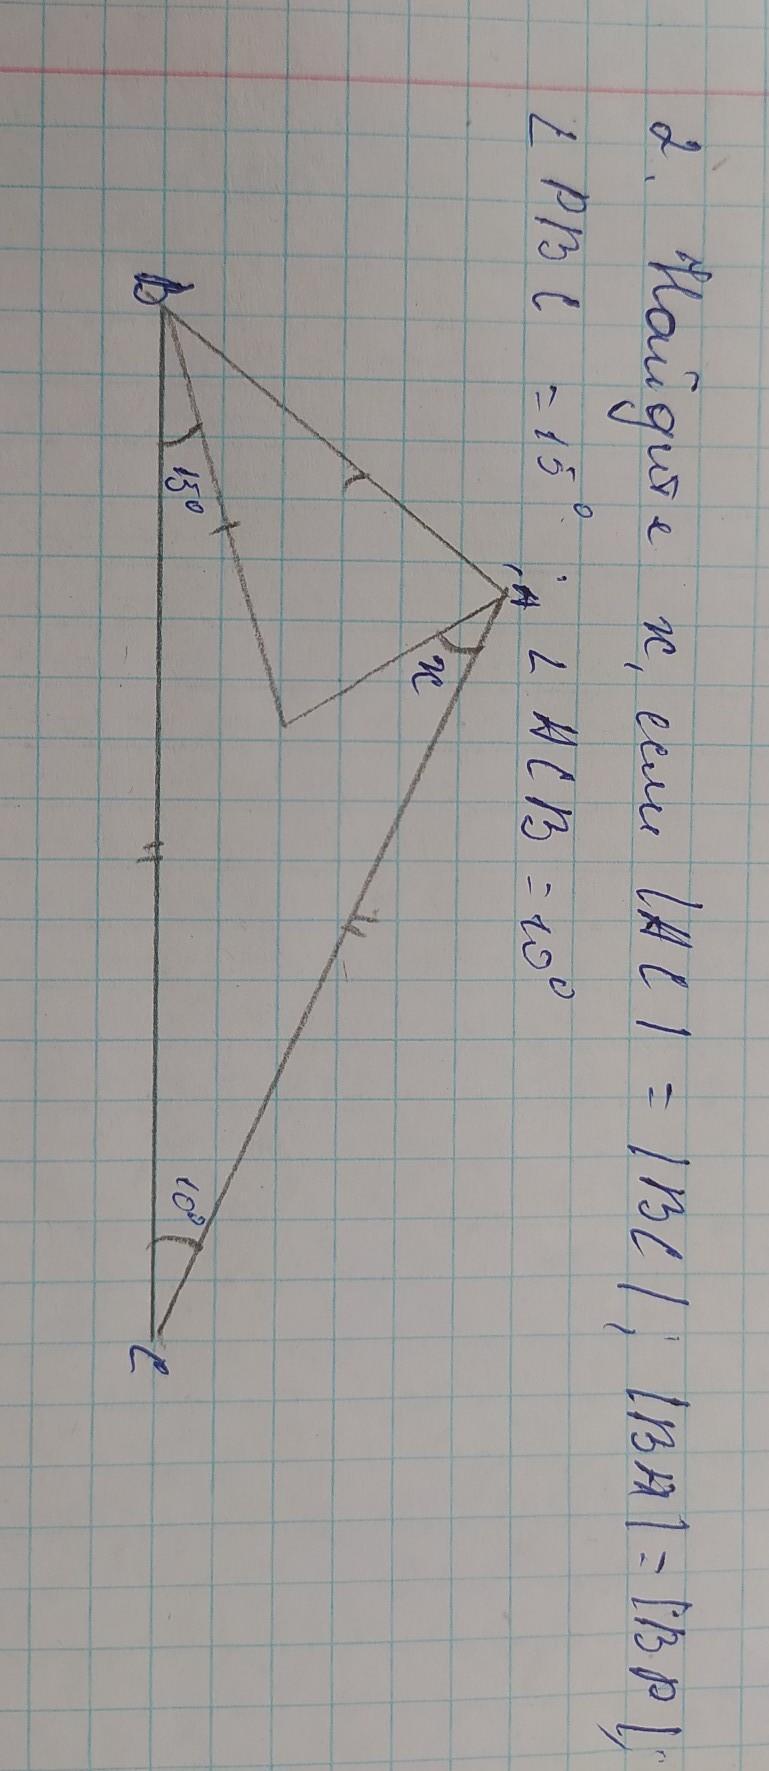 2. Найдите x, если |AC| = |BC|; |BA| = |BP|;
∠PBC = 15°; ∠ACB = 10°
A
x
B
15°
10°
C